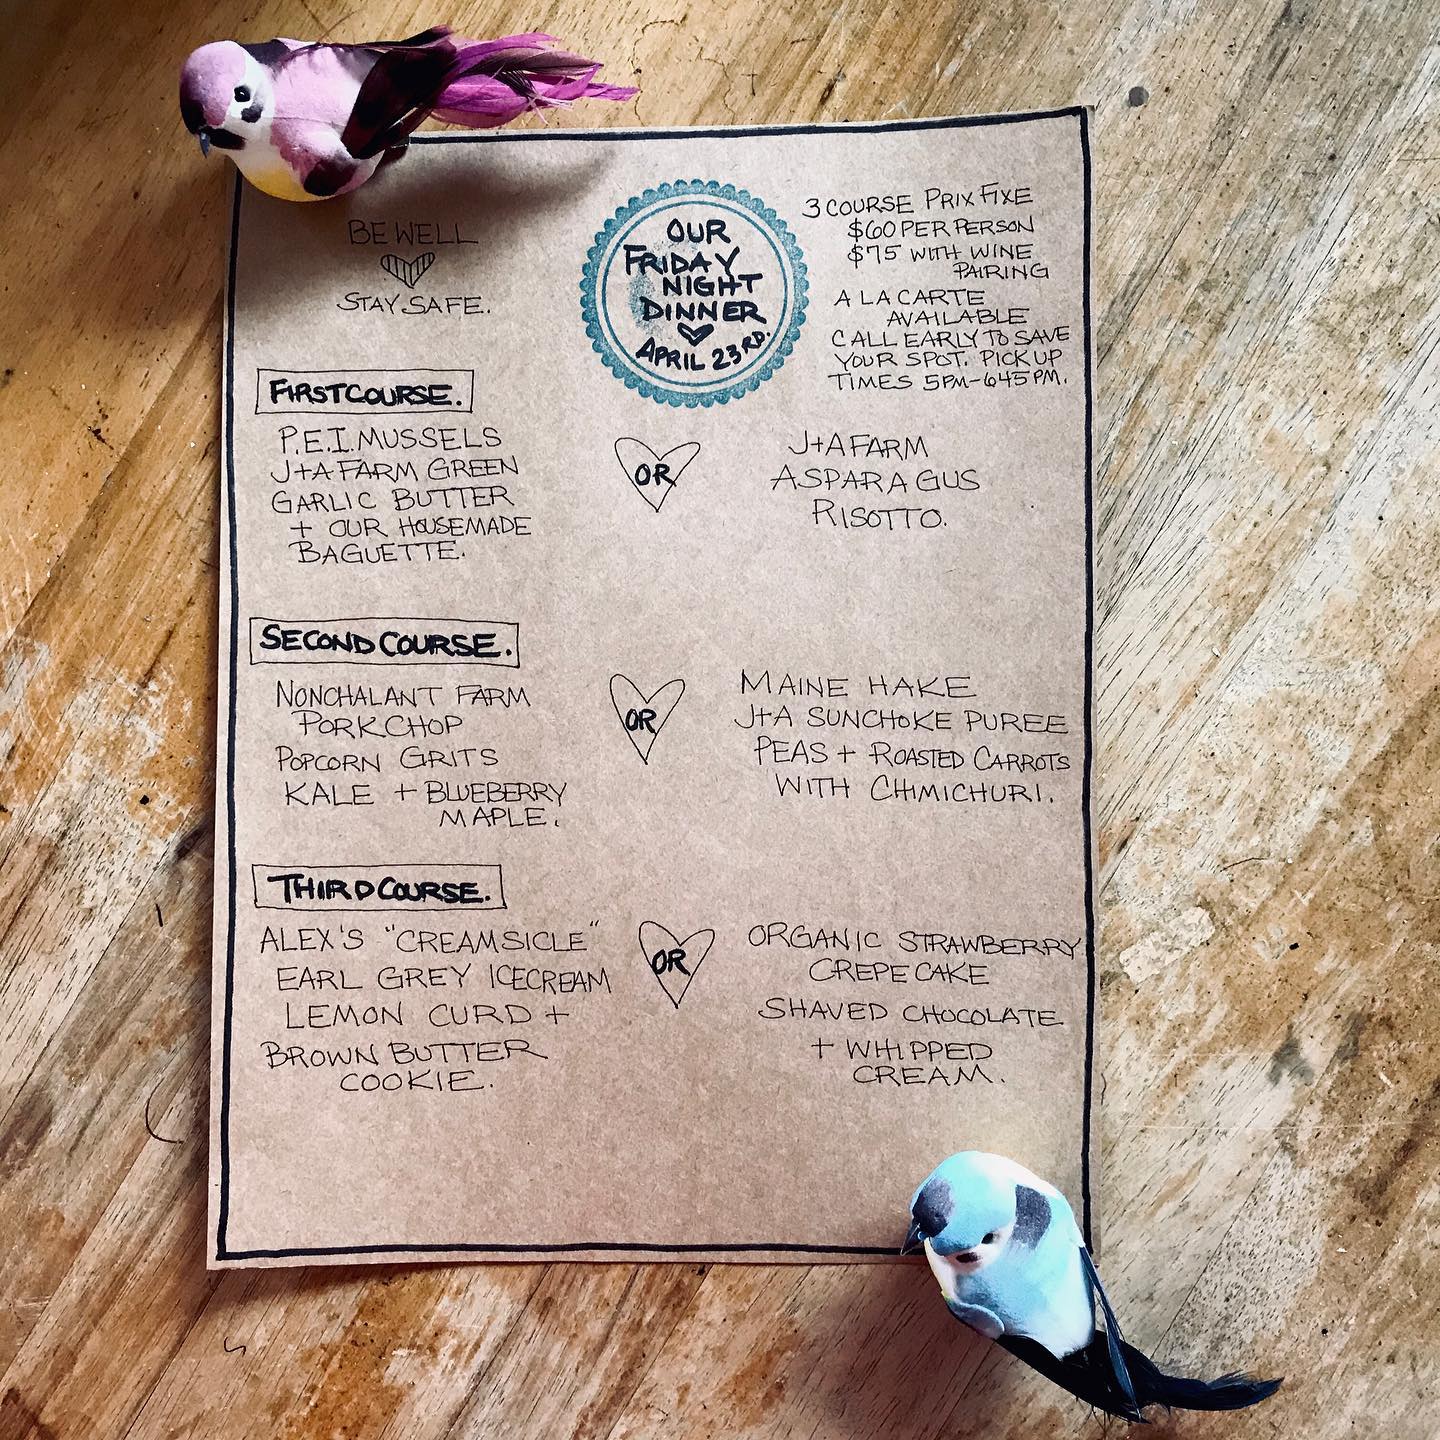 BE WELL
STAY SAFE.
OUR
FRIDAY
NIGHT
DINNER
APRIL 23RD.
3 COURSE PRIX FIXE
$60 PER PERSON
$75 WITH WINE
PAIRING
A LA CARTE
AVAILABLE
CALL EARLY TO SAVE
YOUR SPOT. PICK UP
TIMES 5PM-645PM.
FIRST COURSE.
P.E.I. MUSSELS
J+A FARM GREEN
GARLIC BUTTER
+ OUR HOUSEMADE
BAGUETTE.
OR
J+A FARM
ASPARAGUS
RISOTTO.
SECOND COURSE.
NONCHALANT FARM
PORK CHOP
POPCORN GRITS
KALE + BLUEBERRY
MAPLE.
OR
MAINE HAKE
J+A SUNCHOKE PUREE
PEAS + ROASTED CARROTS
WITH CHIMICHURI.
THIRD COURSE.
ALEX'S "CREAMSICLE"
EARL GREY ICECREAM
LEMON CURD +
BROWN BUTTER
COOKIE.
OR
ORGANIC STRAWBERRY
CREPE CAKE
SHAVED CHOCOLATE
+ WHIPPED
CREAM.